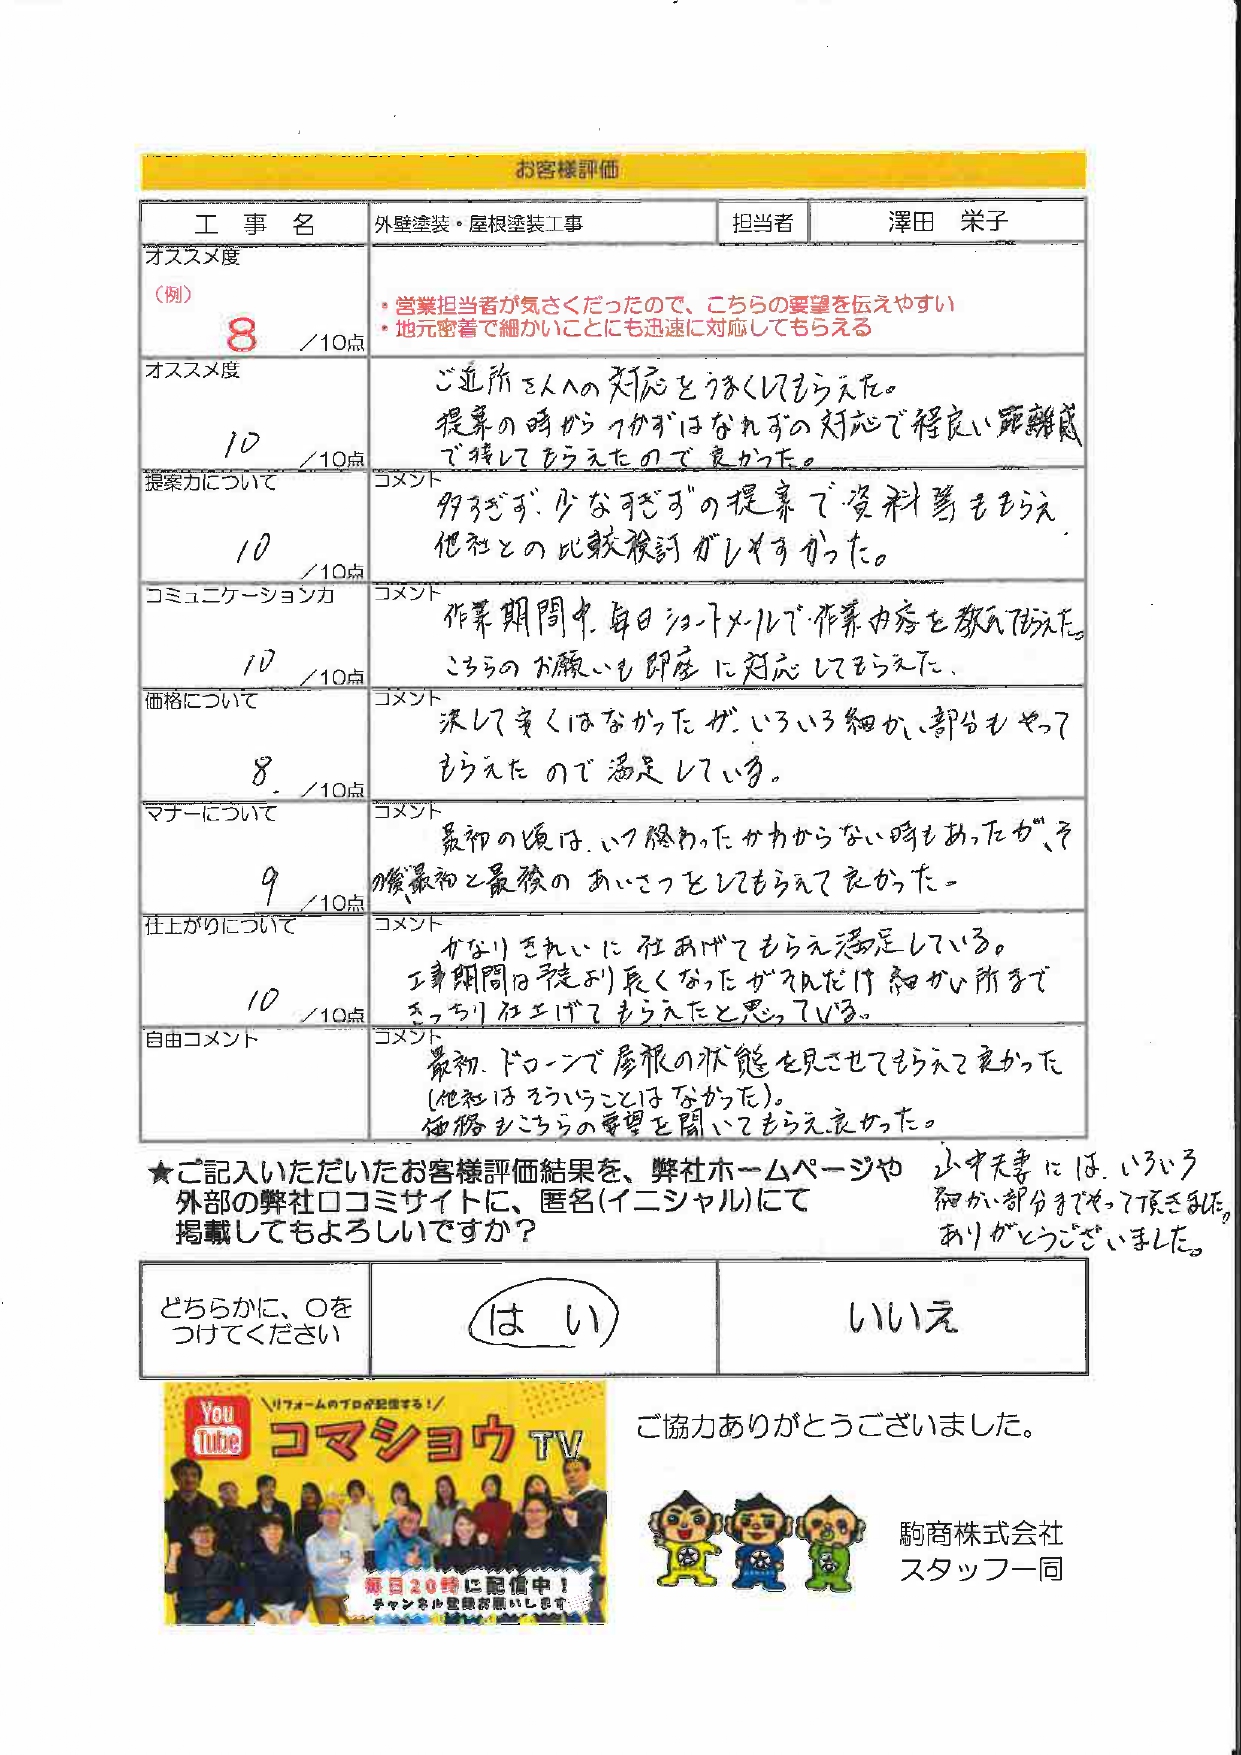 お客様評価
工 事 名 外壁塗装・屋根塗装工事 担当者 澤田 栄子
オススメ度
(例)
8 /10点
・営業担当者が気さくだったので、こちらの要望を伝えやすい
・地元密着で細かいことにも迅速に対応してもらえる
オススメ度
10 /10点
ご近所さんへの対応をうまくしてもらえた。
提案の時からつかずはなれずの対応で程良い距離感
で接してもらえたので良かった。
提案力について
10 /10点
コメント
多すぎず、少なすぎずの提案で資料等ももらえ
他社との比較検討がしやすかった。
コミュニケーション力
10 /10点
コメント
作業期間中、毎日ショートメールで作業内容を教えてもらえた。
こちらのお願いも即座に対応してもらえた。
価格について
8 /10点
コメント
決して安くはなかったが、いろいろ細かい部分もやって
もらえたので満足している。
マナーについて
9 /10点
コメント
最初の頃は、いつ終わったかわからない時もあったが、そ
の後最初と最後のあいさつをしてもらえて良かった。
仕上がりについて
10 /10点
コメント
かなりきれいに仕あげてもらえ満足している。
工事期間は予定より長くなったがそれだけ細かい所まで
きっちり仕上げてもらえたと思っている。
自由コメント
コメント
最初、ドローンで屋根の状態を見させてもらえて良かった
(他社はそういうことはなかった)。
価格もこちらの要望を聞いてもらえ良かった。
★ご記入いただいたお客様評価結果を、弊社ホームページや
外部の弊社口コミサイトに、匿名(イニシャル)にて
掲載してもよろしいですか?
山中夫妻には、いろいろ
細かい部分までやって頂きました。
ありがとうございました。
どちらかに、〇を
つけてください
は い
いいえ
You Tube
\リフォームのプロが配信する!/
コマショウTV
毎日20時に配信中!
チャンネル登録お願いします
ご協力ありがとうございました。
駒商株式会社
スタッフ一同